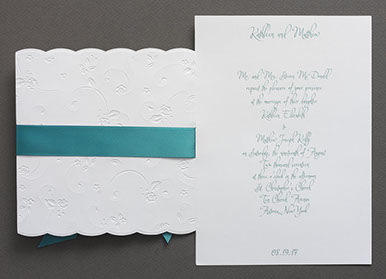 Kathleen and Matthew
Mr. and Mrs. Steven McDonald
request the pleasure of your presence
at the marriage of their daughter
Kathleen Elizabeth
&
Matthew Joseph
on Saturday, the nineteenth of August
Two thousand seventeen
at three o'clock in the afternoon
St. Christopher's Church
Ten Church Avenue
New York
08.19.17